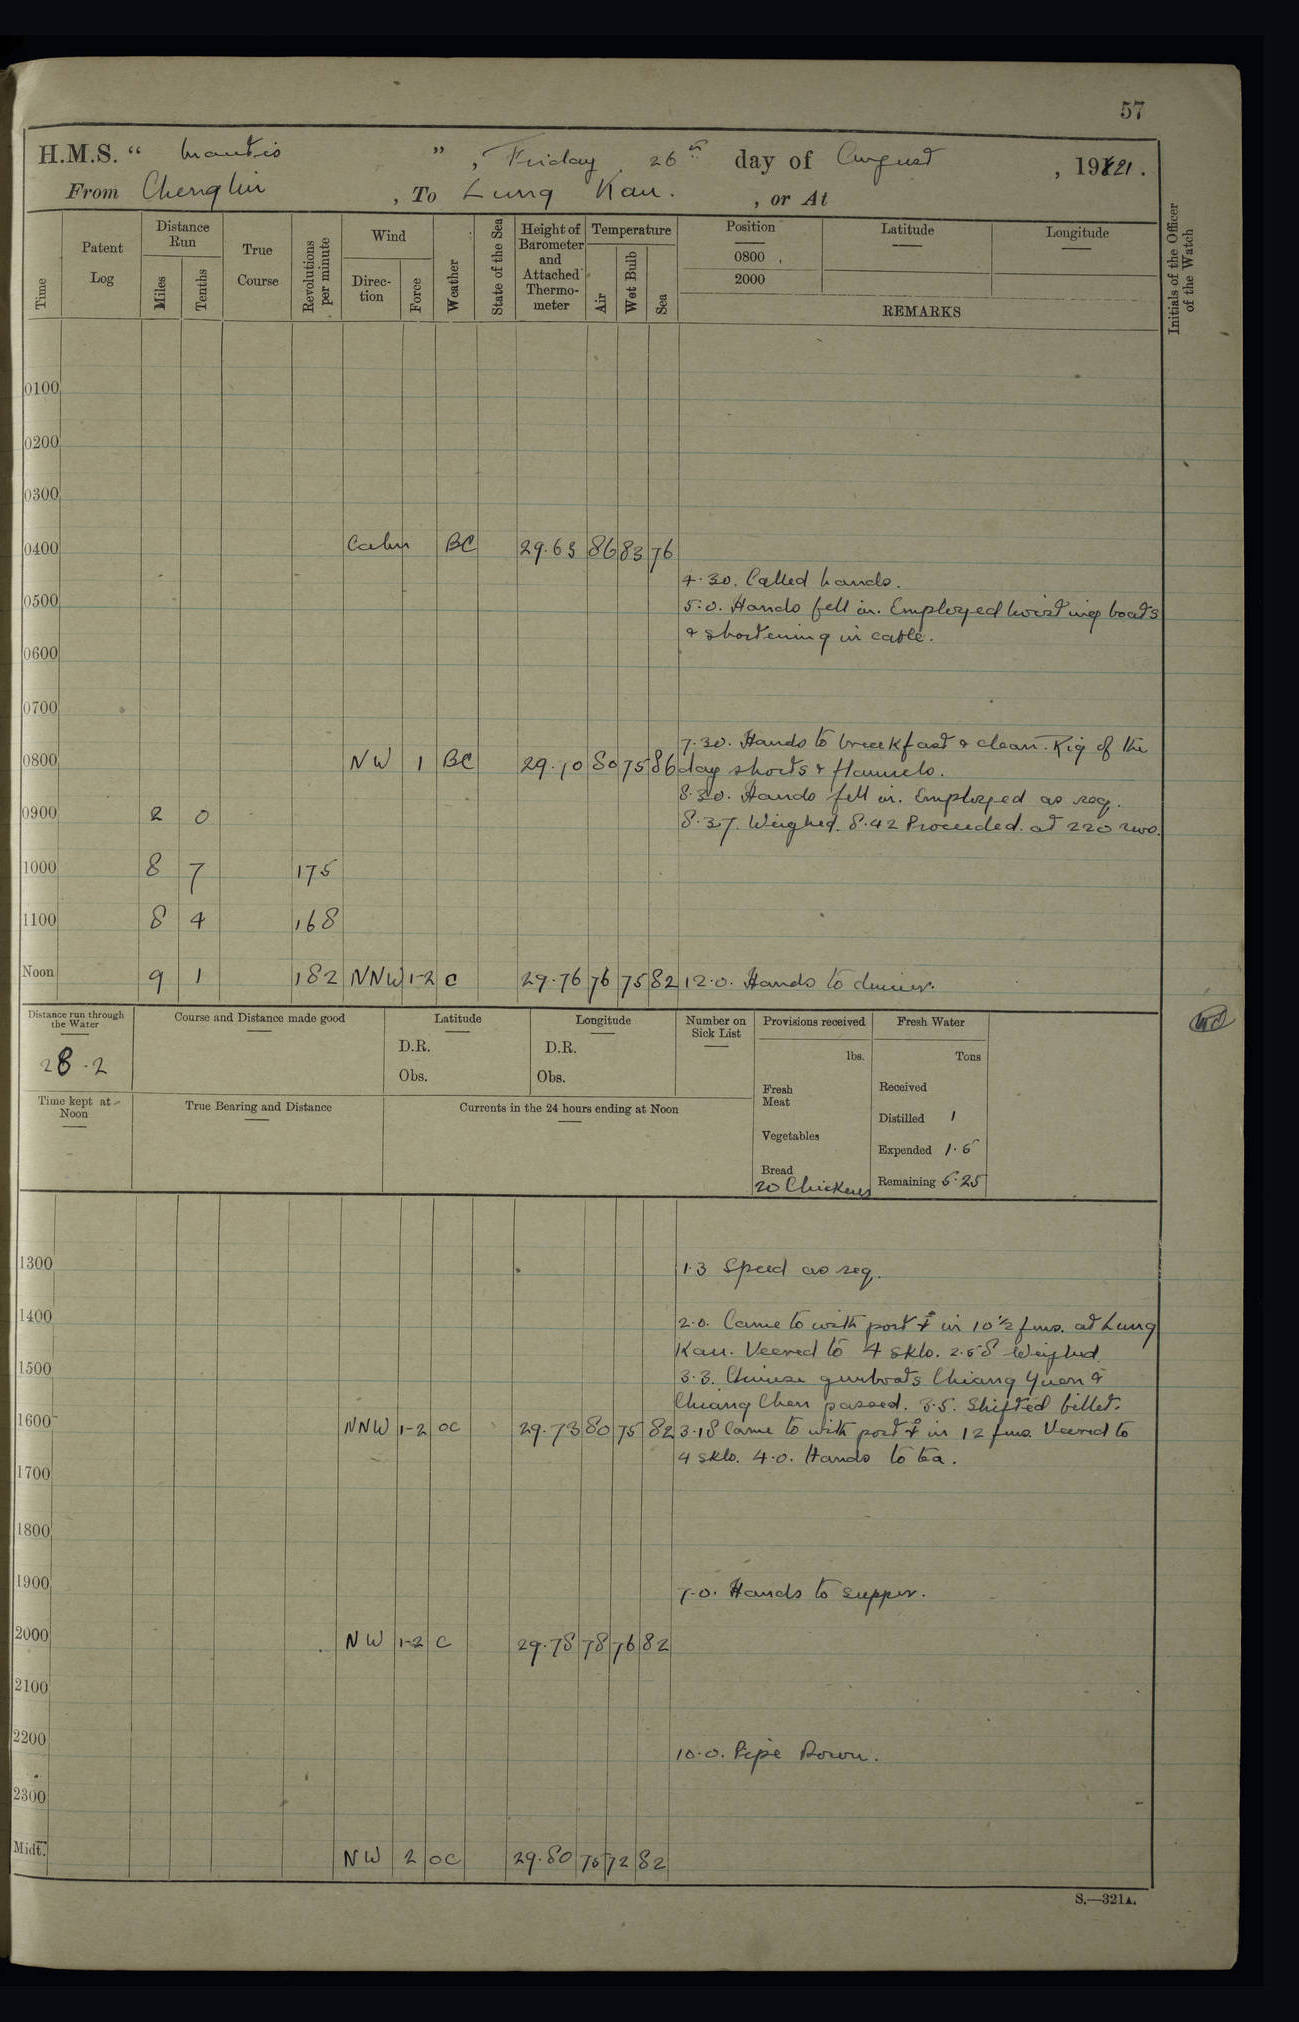 57
H.M.S. “ Mantis ” , Friday 26th day of August , 1921.
From Chenglin , To Lung Kau. , or At
Time
Patent Log
Distance Run
Miles
Tenths
True Course
Revolutions per minute
Wind
Direc-tion
Force
Weather
State of the Sea
Height of Barometer and Attached Thermo-meter
Temperature
Air
Wet Bulb
Sea
Position
0800
2000
Latitude
Longitude
REMARKS
Initials of the Officer of the Watch
0100
0200
0300
0400 Calm BC 29.63 86 83 76
4.30. Called hands.
0500 5.0. Hands fell in. Employed hoisting boats
& shortening in cable.
0600
0700
7.30. Hands to breakfast & clean. Rig of the
0800 NW 1 BC 29.70 80 75 86 day shorts & flannels.
8.30. Hands fell in. Employed as req.
0900 2 0 8.37. Weighed. 8.42 Proceeded at 220 revs.
1000 8 7 175
1100 8 4 168
Noon 9 1 182 NNW 1-2 C 29.76 76 75 82 12.0. Hands to dinner.
Distance run through the Water
28.2
Course and Distance made good
Latitude
D.R.
Obs.
Longitude
D.R.
Obs.
Number on Sick List
Provisions received
lbs.
Fresh Meat
Vegetables
Bread
20 Chickens
Fresh Water
Tons
Received
Distilled 1
Expended 1.5
Remaining 5.25
Time kept at Noon
True Bearing and Distance
Currents in the 24 hours ending at Noon
1300 1.3 Speed as req.
1400 2.0. Came to with port ⚓ in 10½ fms. at Lung
Kau. Veered to 4 skls. 2.58 Weighed.
1500 3.3. Chinese gunboats Chiang Yuen &
Chiang Chen passed. 3.5. Shifted billet.
1600 NNW 1-2 OC 29.73 80 75 82 3.18 Came to with port ⚓ in 12 fms. Veered to
4 skls. 4.0. Hands to tea.
1700
1800
1900 7.0. Hands to supper.
2000 NW 1-2 C 29.78 78 76 82
2100
2200 10.0. Pipe Down.
2300
Midt. NW 2 OC 29.80 75 72 82
S.—321A.